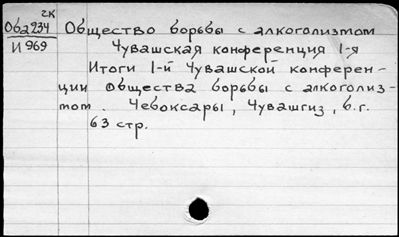 гк
Оба234 Общество борьбы с алкоголизмом
И969 Чувашская конференция 1-я
Итоги 1-й Чувашской конферен-
ции общества борьбы с алкоголиз-
мом. Чебоксары, Чувашгиз, б.г.
63 стр.